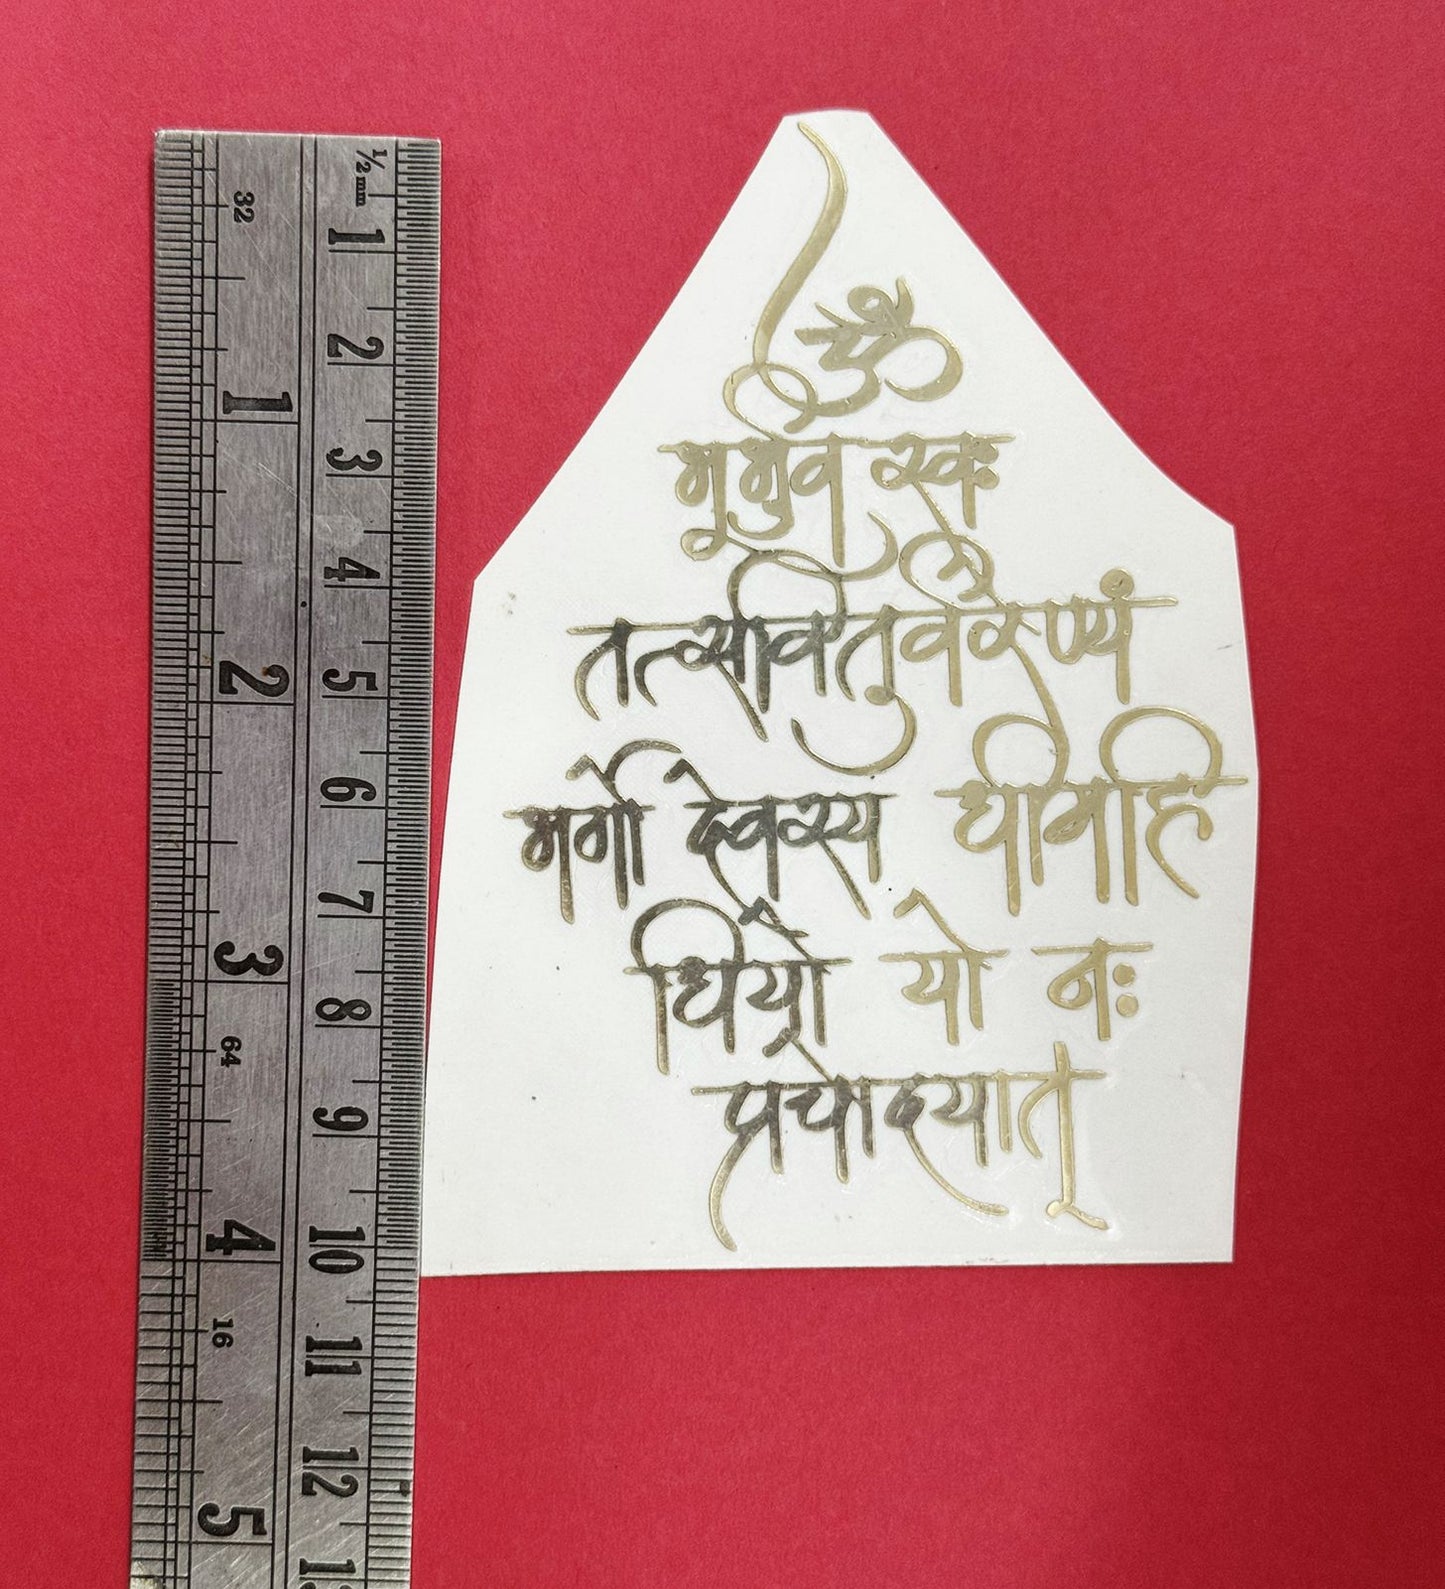 ½mm
32
1
2
3
4
5
6
7
8
9
10
11
12
1
2
3
64
4
16
5
ॐ
भूर्भुव स्वः
तत्सवितुर्वरेण्यं
भर्गो देवस्य धीमहि
धियो यो नः
प्रचोदयात्